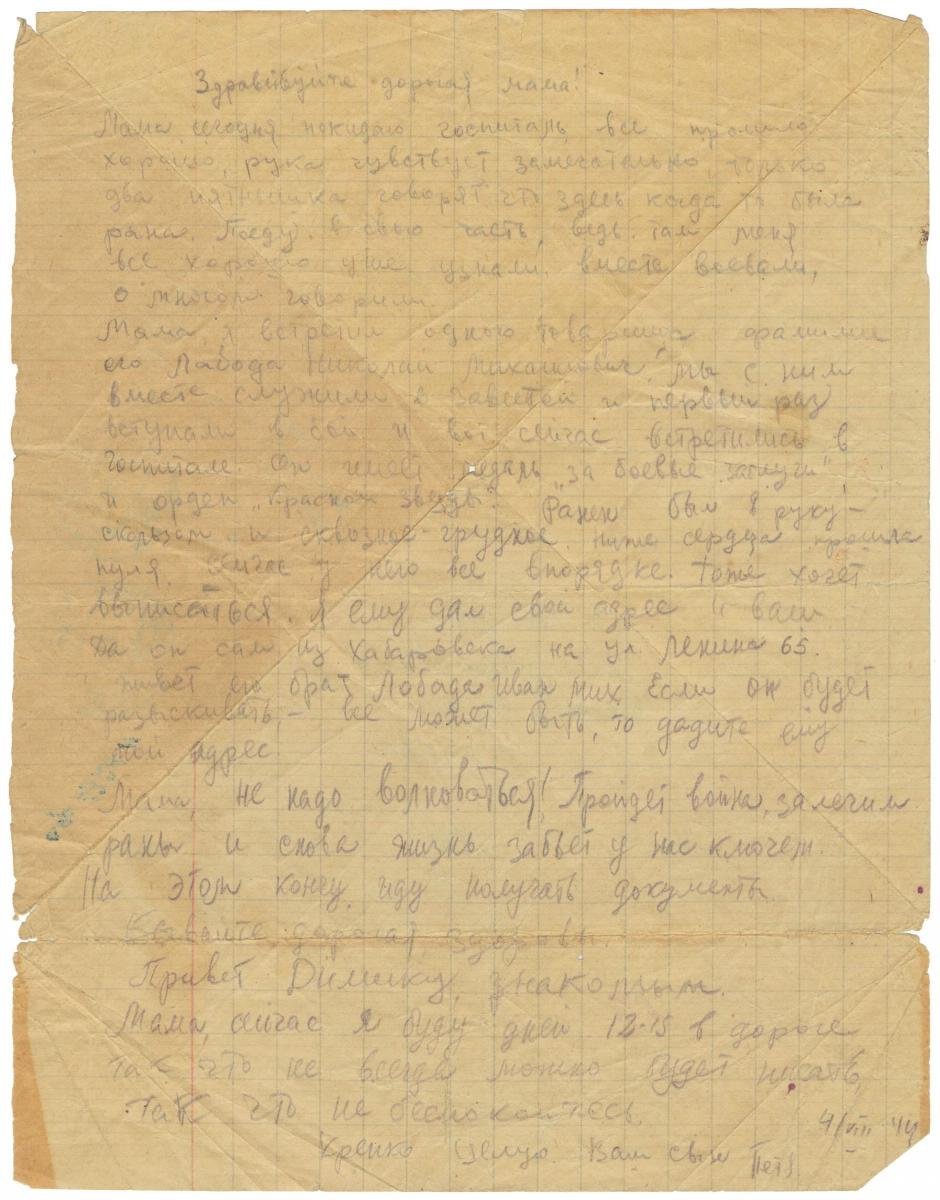 Здравствуйте дорогая мама!
Мама сегодня покидаю госпиталь, все прошло
хорошо, рука чувствует замечательно, только
два пятнышка говорят, что здесь когда то была
рана. Поеду в свою часть, ведь там меня
все хорошо уже узнали, вместе воевали,
о многом говорили.
Мама, я встретил одного товарища фамилия
его Лобода Николай Михайлович, мы с ним
вместе служили в и первый раз
вступали в бой и вот сейчас встретились в
госпитале. Он имеет медаль „за боевые заслуги"
и орден „Красной звезды". Ранен был в руку –
и сквозное грудное, ниже сердца прошла
пуля. Сейчас у него все впорядке. Тоже хочет
выписаться. Я ему дал свой адрес и ваш
Да он сам из Хабаровска на ул. Ленина 65.
живет его брат Лобода Иван Мих. Если он будет
разыскивать – все может быть, то дадите ему
мой адрес.
Мама, не надо волноваться! Пройдет война, залечим
раны и снова жизнь забьет у нас ключем.
На этом конец, иду получать документы.
Бывайте дорогая здоровы.
Привет Димику, знакомым.
Мама, сейчас я буду дней 12-15 в дороге
так что не всегда можно будет писать,
так что не беспокойтесь.
4/VIII 44
Крепко целую Ваш сын Петя